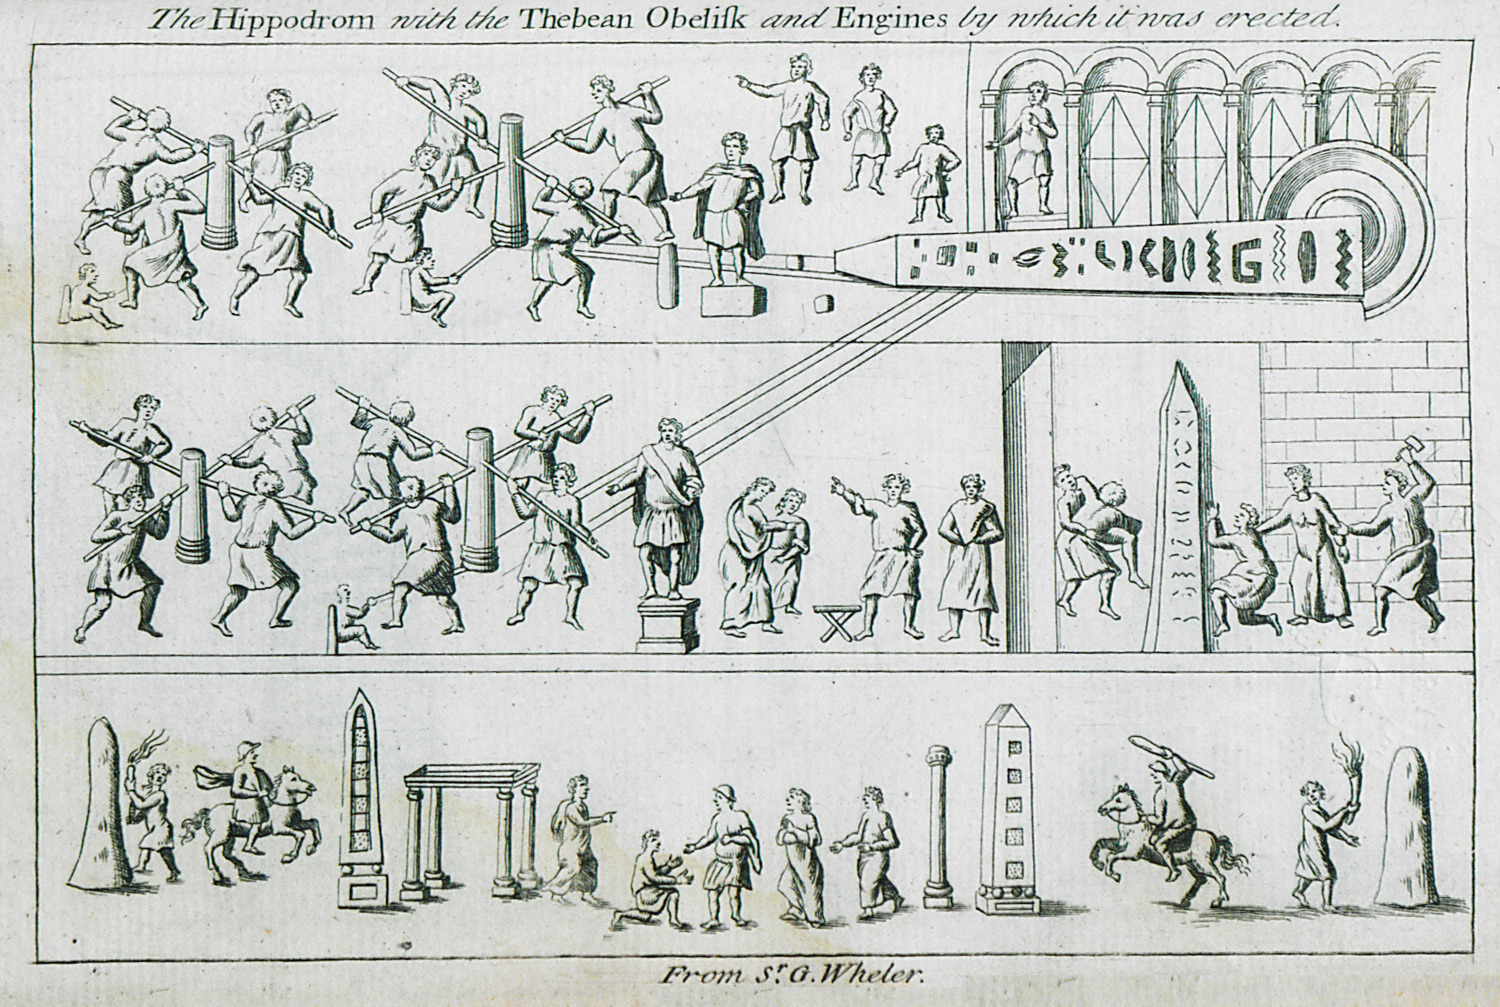 The Hippodrom with the Thebean Obeliſk and Engines by which it was erected.
From Sr. G. Wheler.